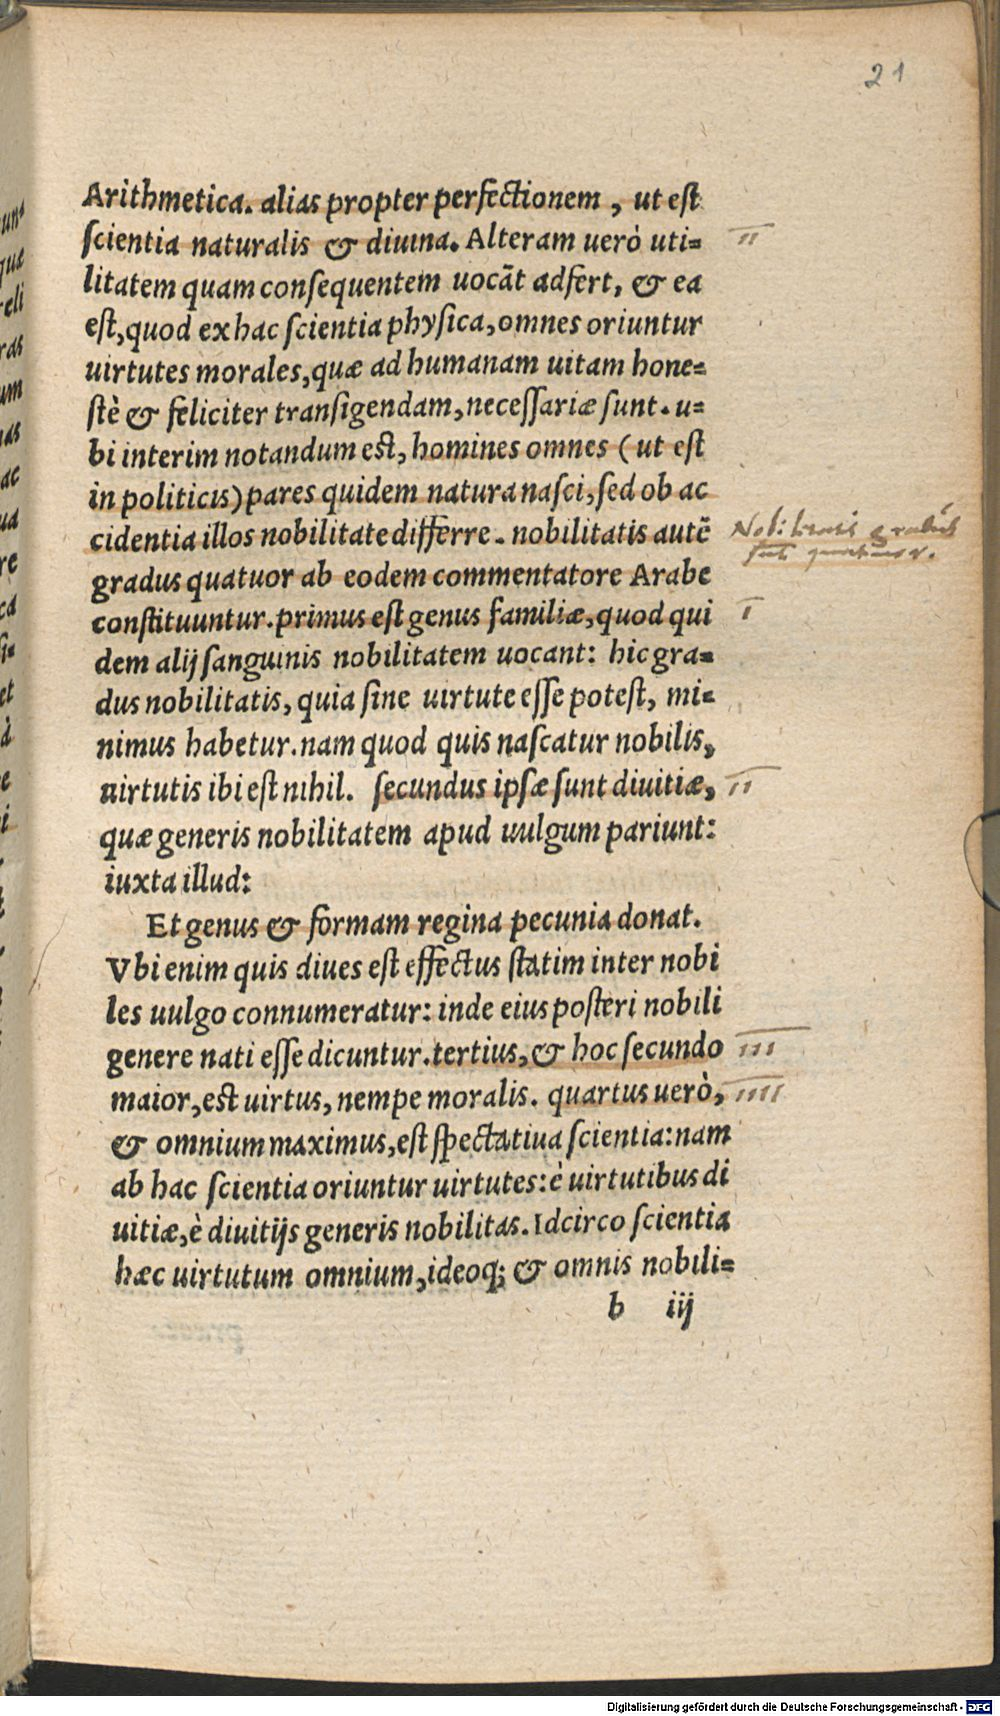 21
Arithmetica. alias propter perfectionem, ut est
scientia naturalis & diuina. Alteram uerò uti=
II
litatem quam consequentem uocãt adfert, & ea
est, quod ex hac scientia physica, omnes oriuntur
uirtutes morales, quæ ad humanam uitam hone=
stè & feliciter transigendam, necessariæ sunt. u=
bi interim notandum est, homines omnes (ut est
in politicis) pares quidem natura nasci, sed ob ac
cidentia illos nobilitate differre. nobilitatis autẽ
Nobilitatis gradus
sunt quatuor.
gradus quatuor ab eodem commentatore Arabe
constituuntur. primus est genus familiæ, quod qui
I
dem alij sanguinis nobilitatem uocant: hic gra=
dus nobilitatis, quia sine uirtute esse potest, mi=
nimus habetur. nam quod quis nascatur nobilis,
uirtutis ibi est nihil. secundus ipsæ sunt diuitiæ,
II
quæ generis nobilitatem apud uulgum pariunt:
iuxta illud:
Et genus & formam regina pecunia donat.
Vbi enim quis diues est effectus statim inter nobi
les uulgo connumeratur: inde eius posteri nobili
genere nati esse dicuntur. tertius, & hoc secundo
III
maior, est uirtus, nempe moralis. quartus uerò,
IIII
& omnium maximus, est spectatiua scientia: nam
ab hac scientia oriuntur uirtutes: è uirtutibus di
uitiæ, è diuitijs generis nobilitas. Idcirco scientia
hæc uirtutum omnium, ideoq; & omnis nobili=
b iij
Digitalisierung gefördert durch die Deutsche Forschungsgemeinschaft - DFG